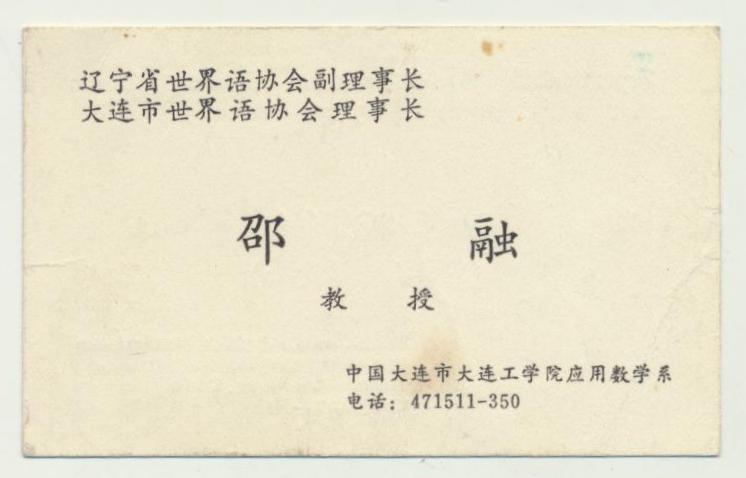 辽宁省世界语协会副理事长
大连市世界语协会理事长
邵 融
教 授
中国大连市大连工学院应用数学系
电话：471511-350